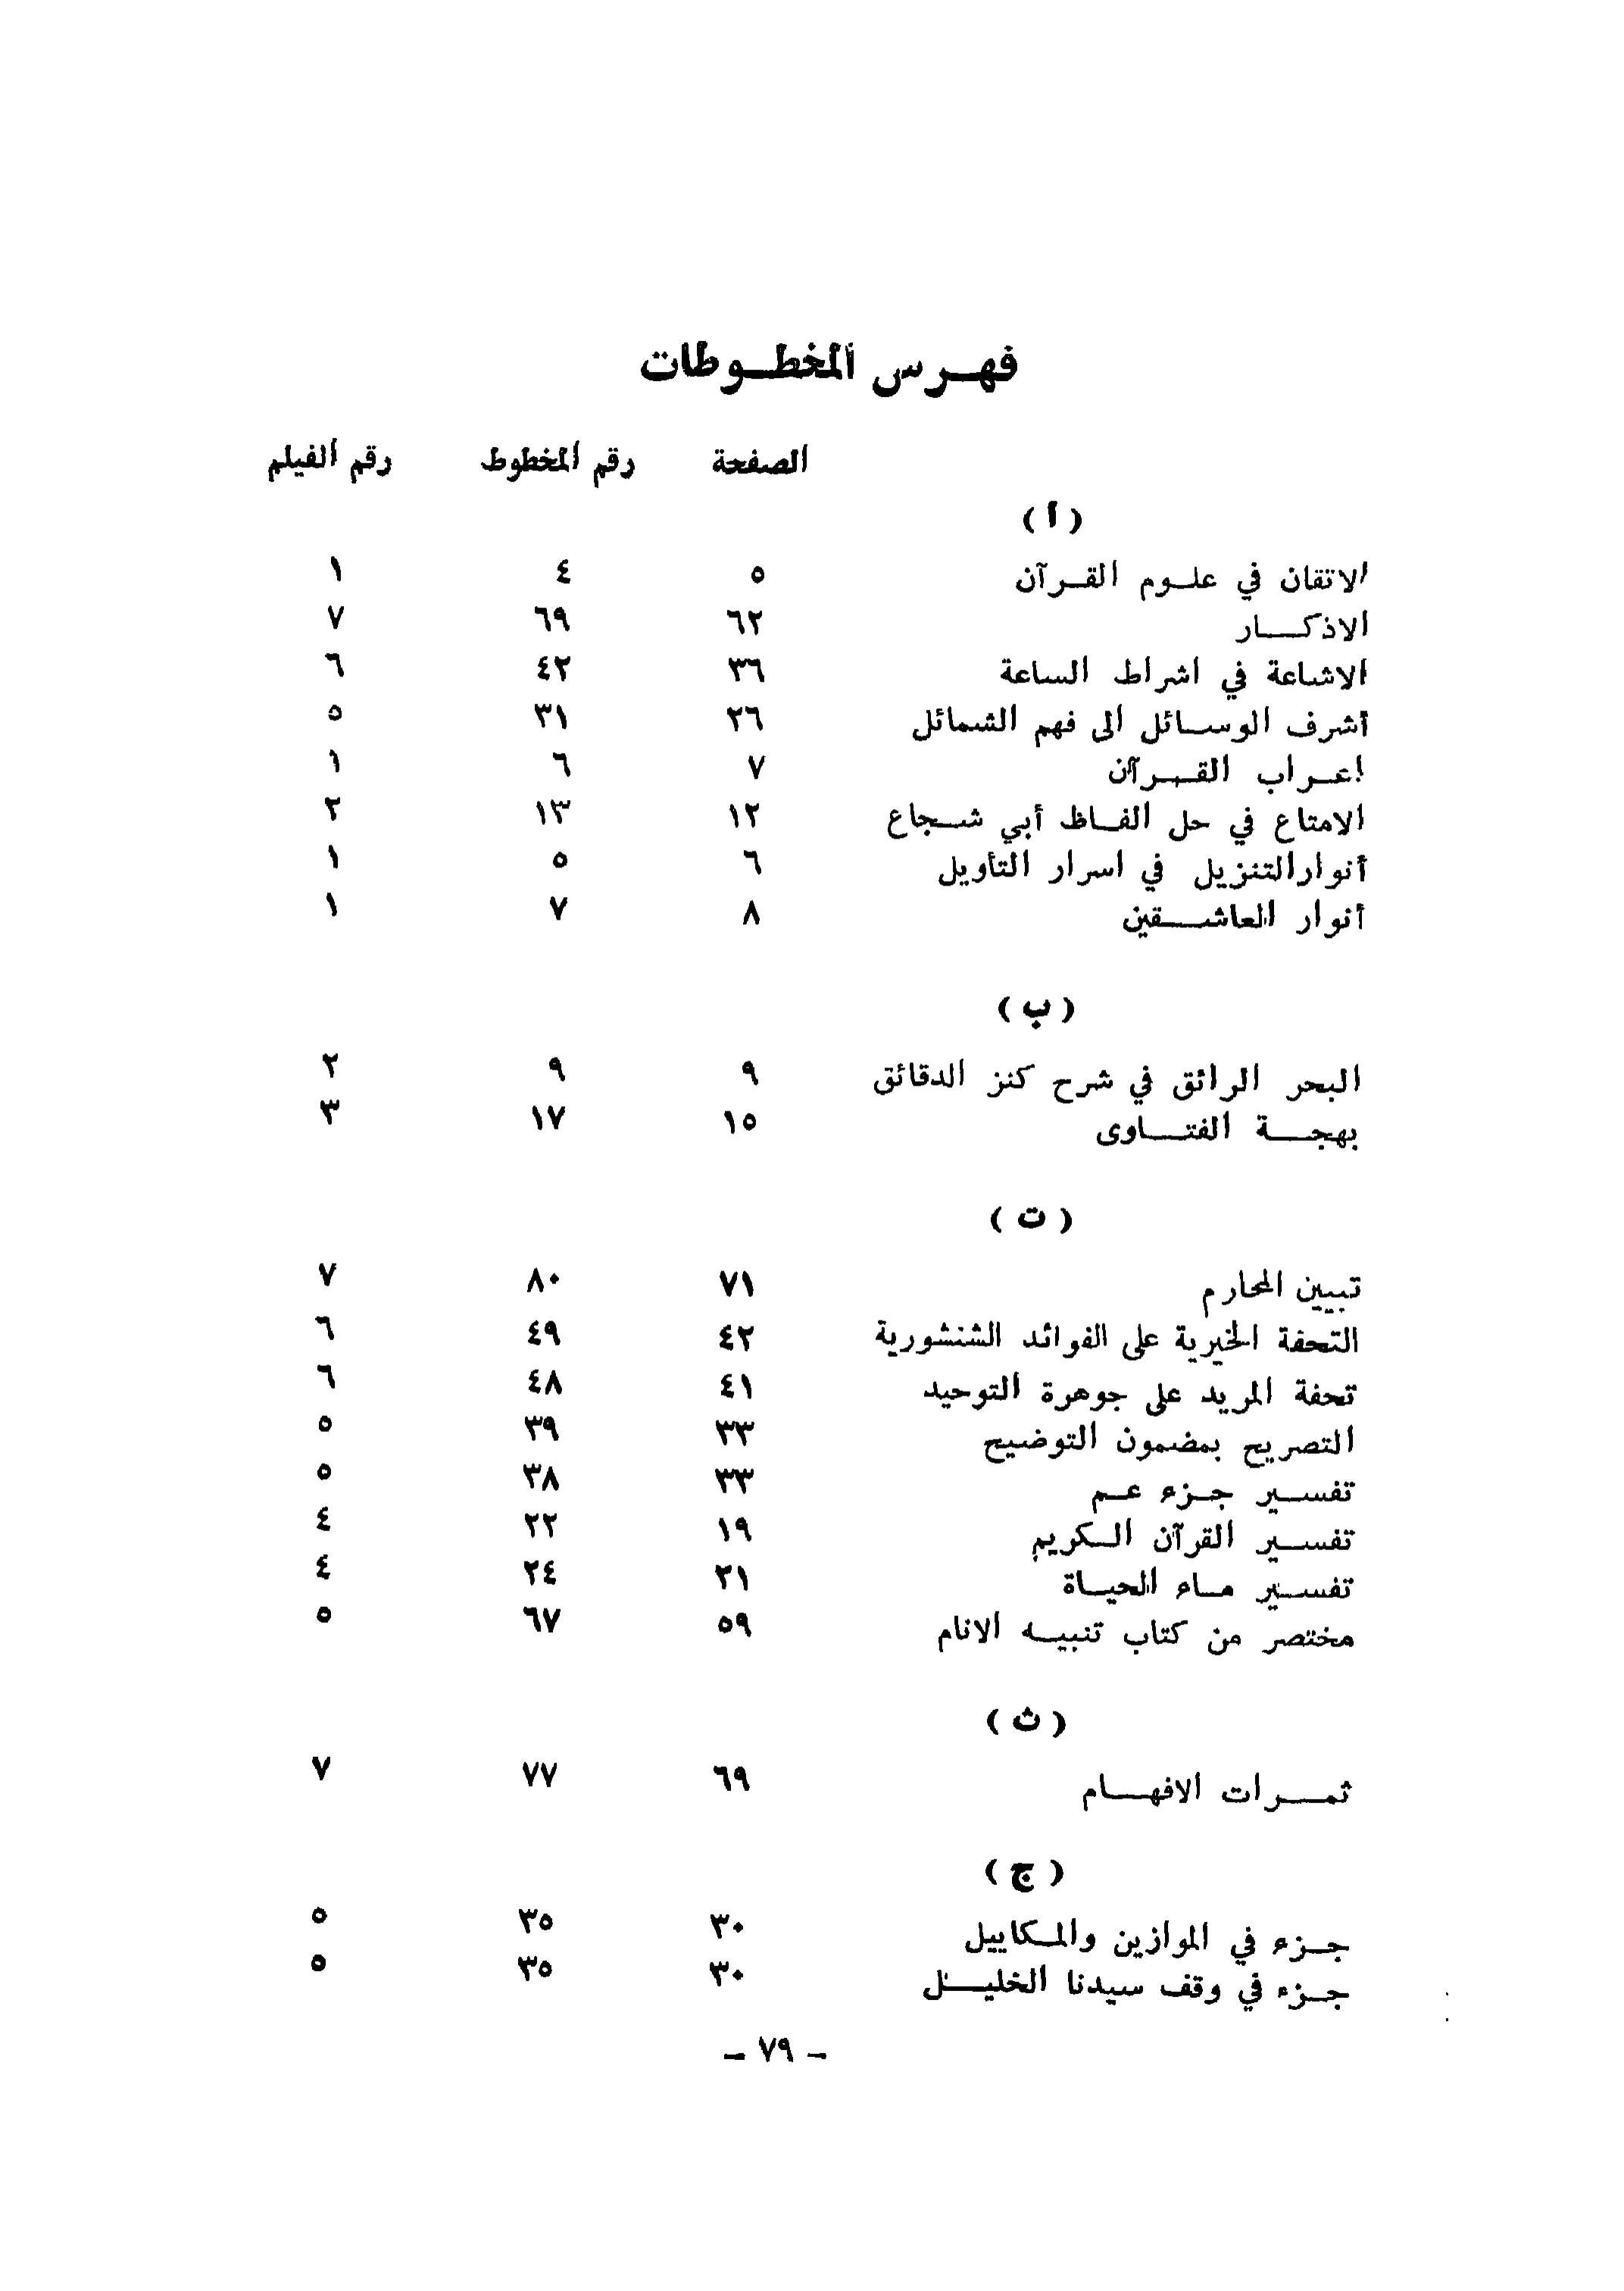 فهرس المخطوطات
الصفحة رقم المخطوط رقم الفيلم
( أ )
الاتقان في علوم القرآن ٥ ٤ ١
الاذكار ٦٢ ٦٩ ٧
الاشاعة في اشراط الساعة ٣٦ ٤٢ ٦
أشرف الوسائل الى فهم الشمائل ٢٦ ٣١ ٥
إعراب القرآن ٧ ٦ ١
الامتاع في حل الفاظ أبي شجاع ١٢ ١٣ ٢
أنوار التنزيل في اسرار التأويل ٦ ٥ ١
أنوار العاشقين ٨ ٧ ١
( ب )
البحر الرائق في شرح كنز الدقائق ٩ ٩ ٢
بهجة الفتاوى ١٥ ١٧ ٣
( ت )
تبيين المحارم ٧١ ٨٠ ٧
التحفة الخيرية على الفوائد الشنشورية ٤٢ ٤٩ ٦
تحفة المريد على جوهرة التوحيد ٤١ ٤٨ ٦
التصريح بمضمون التوضيح ٣٣ ٣٩ ٥
تفسير جزء عم ٣٣ ٣٨ ٥
تفسير القرآن الكريم ١٩ ٢٢ ٤
تفسير ماء الحياة ٢١ ٢٤ ٤
مختصر من كتاب تنبيه الانام ٥٩ ٦٧ ٥
( ث )
ثمرات الافهام ٦٩ ٧٧ ٧
( ج )
جزء في الموازين والمكاييل ٣٠ ٣٥ ٥
جزء في وقف سيدنا الخليل ٣٠ ٣٥ ٥
- ٧٩ -